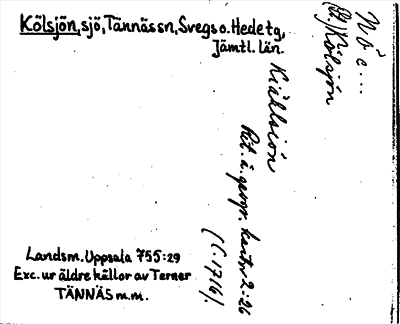 Kölsjön, sjö, Tännäs sn, Svegs o. Hede tg,
Jämtl. län.
Nö c...
(St.) Kölsjön
Kiählsiön
Rit. å. geogr. kartv 2:26
(C. 1716).
Landsm. Uppsala 755:29
Exc. ur äldre källor av Terner
TÄNNÄS m.m.